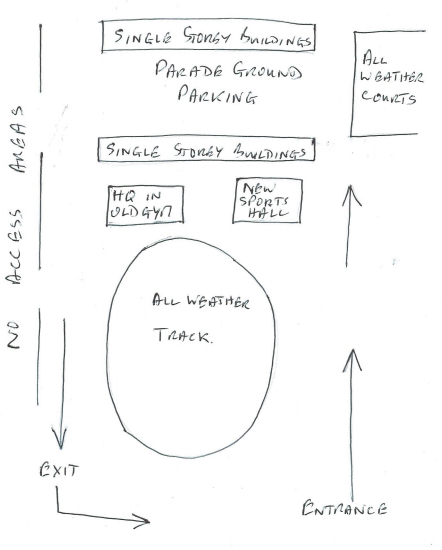 SINGLE STOREY BUILDINGS
PARADE GROUND
PARKING
ALL
WEATHER
COURTS
SINGLE STOREY BUILDINGS
HQ IN
OLD GYM
NEW
SPORTS
HALL
NO ACCESS AREAS
ALL WEATHER
TRACK.
EXIT
ENTRANCE